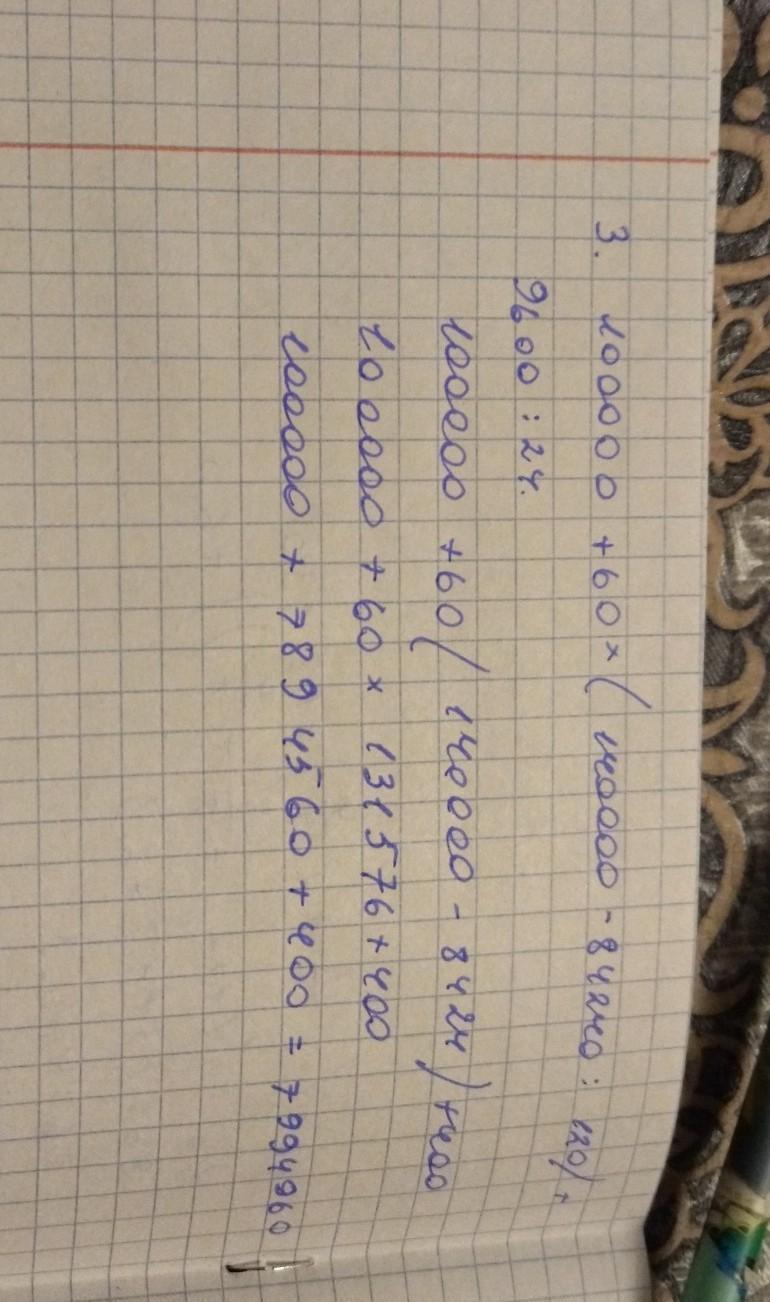 3. 100000 + 60 × (140000 - 84240 : 120) +
9600 : 24.
100000 + 60 ( 140000 - 8424 ) + 400
100000 + 60 × 131576 + 400
100000 + 7894560 + 400 = 7994960